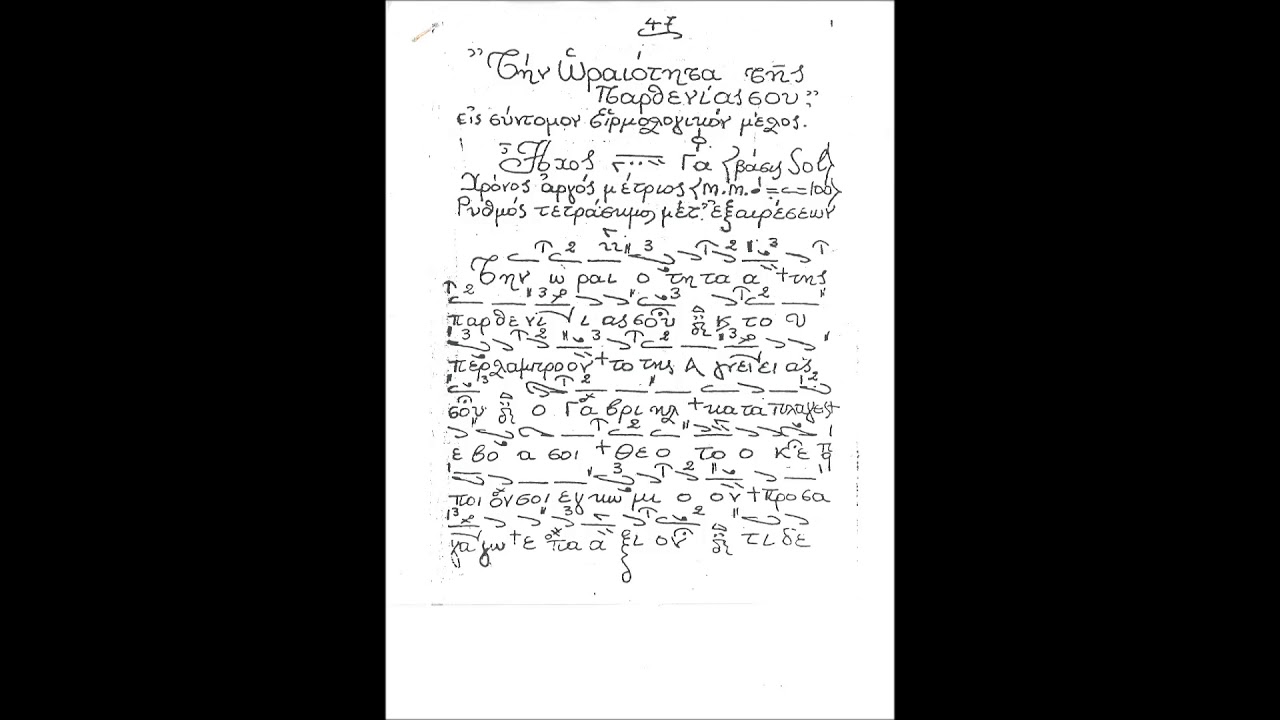 47
"Τὴν ὡραιότητα τῆς
παρθενίας σου"
εἰς σύντομον εἱρμολογικόν μέλος.
Ἦχος Γα {βάσις Sol}
Χρόνος ἀργός μέτριος {m.m. = 100}
Ρυθμός τετράσημος μετ' ἐξαιρέσεων
Την ω ραι ο τη τα α + της
παρθενι ι ας σου κ το υ
περλαμπροον + το της Α γνειει ας
σου ο Γα βρι ηλ + κα τα πλαγεις +
ε βο α σοι + Θε ο το ο κε
ποι ον σοι εγκω μι ο ον + προσα
γα γω + ε πα α ξι ον τι δε